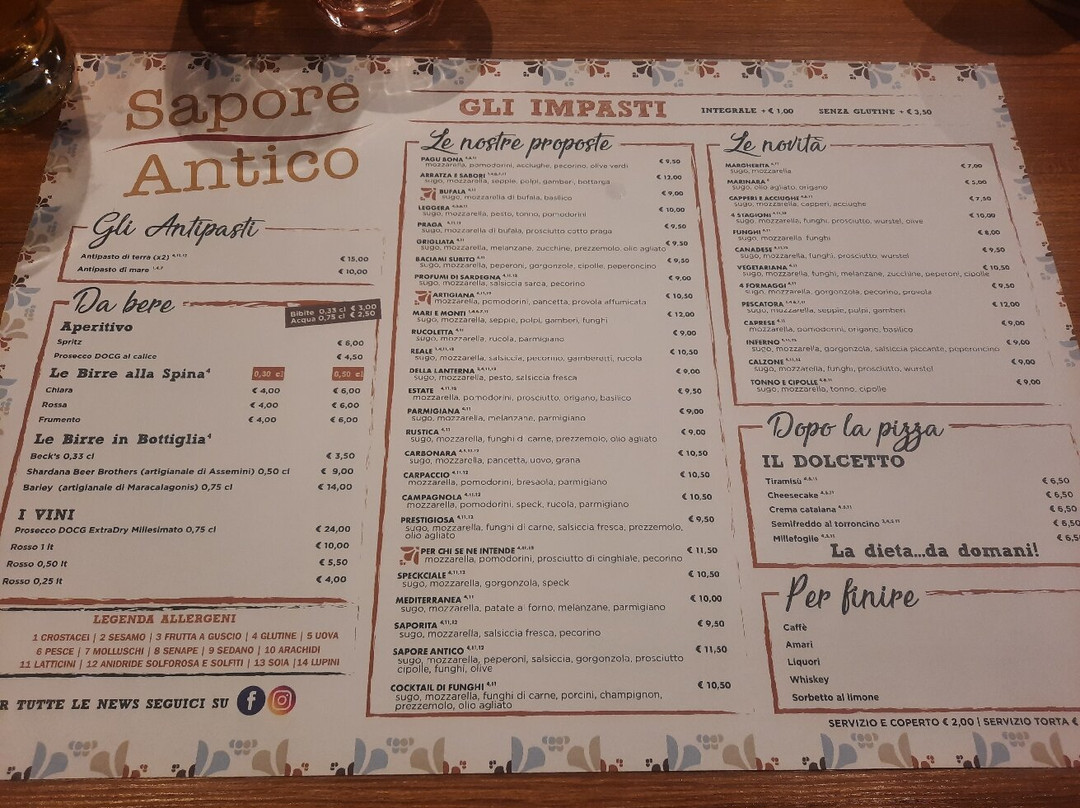 Sapore
Antico
Gli Antipasti
Antipasto di terra (x2) 4,11,12 € 15,00
Antipasto di mare 1,4,7 € 10,00
Da bere
Bibite 0,33 cl € 3,00
Acqua 0,75 cl € 2,50
Aperitivo
Spritz € 6,00
Prosecco DOCG al calice € 4,50
Le Birre alla Spina⁴ 0,30 cl 0,50 cl
Chiara € 4,00 € 6,00
Rossa € 4,00 € 6,00
Frumento € 4,00 € 6,00
Le Birre in Bottiglia⁴
Beck's 0,33 cl € 3,50
Shardana Beer Brothers (artigianale di Assemini) 0,50 cl € 9,00
Barley (artigianale di Maracalagonis) 0,75 cl € 14,00
I VINI
Prosecco DOCG ExtraDry Millesimato 0,75 cl € 24,00
Rosso 1 lt € 10,00
Rosso 0,50 lt € 5,50
Rosso 0,25 lt € 4,00
LEGENDA ALLERGENI
1 CROSTACEI | 2 SESAMO | 3 FRUTTA A GUSCIO | 4 GLUTINE | 5 UOVA
6 PESCE | 7 MOLLUSCHI | 8 SENAPE | 9 SEDANO | 10 ARACHIDI
11 LATTICINI | 12 ANIDRIDE SOLFOROSA E SOLFITI | 13 SOIA | 14 LUPINI
R TUTTE LE NEWS SEGUICI SU
GLI IMPASTI INTEGRALE + € 1,00 SENZA GLUTINE + € 3,50
Le nostre proposte
PAGU BONA € 9,50
mozzarella, pomodorini, acciughe, pecorino, olive verdi
ABRATZA E SABORI € 12,00
sugo, mozzarella, seppie, polpi, gamberi, bottarga
BUFALA € 9,00
sugo, mozzarella di bufala, basilico
LEGGERA € 10,00
sugo, mozzarella, pesto, tonno, pomodorini
PRAGA € 9,50
mozzarella di bufala, prosciutto cotto praga
GRIGLIATA € 9,50
sugo, mozzarella, melanzane, zucchine, prezzemolo, olio agliato
BACIAMI SUBITO € 9,50
sugo, mozzarella, peperoni, gorgonzola, cipolle, peperoncino
PROFUMI DI SARDEGNA € 9,00
sugo, mozzarella, salsiccia sarda, pecorino
ARTIGIANA € 10,50
mozzarella, pomodorini, pancetta, provola affumicata
MARI E MONTI € 12,00
sugo, mozzarella, seppie, polpi, gamberi, funghi
RUCOLETTA € 9,00
sugo, mozzarella, rucola, parmigiano
REALE € 10,50
sugo, mozzarella, salsiccia, pecorino, gamberetti, rucola
DELLA LANTERNA € 9,00
sugo, mozzarella, pesto, salsiccia fresca
ESTATE € 9,50
mozzarella, pomodorini, prosciutto, origano, basilico
PARMIGIANA 4,11 € 9,00
sugo, mozzarella, melanzane, parmigiano
RUSTICA 4,11 € 9,00
sugo, mozzarella, funghi di carne, prezzemolo, olio agliato
CARBONARA € 10,50
sugo, mozzarella, pancetta, uovo, grana
CARPACCIO 4,11,12 € 10,50
mozzarella, pomodorini, bresaola, parmigiano
CAMPAGNOLA 4,11,12 € 10,50
mozzarella, pomodorini, speck, rucola, parmigiano
PRESTIGIOSA 4,11,12 € 9,50
sugo, mozzarella, funghi di carne, salsiccia fresca, prezzemolo,
olio agliato
PER CHI SE NE INTENDE € 11,50
mozzarella, pomodorini, prosciutto di cinghiale, pecorino
SPECKCIALE 4,11,12 € 10,50
sugo, mozzarella, gorgonzola, speck
MEDITERRANEA 4,11 € 10,00
sugo, mozzarella, patate al forno, melanzane, parmigiano
SAPORITA 4,11,12 € 9,50
sugo, mozzarella, salsiccia fresca, pecorino
SAPORE ANTICO 4,11,12 € 11,50
sugo, mozzarella, peperoni, salsiccia, gorgonzola, prosciutto
cipolle, funghi, olive
COCKTAIL DI FUNGHI 4,11 € 10,50
sugo, mozzarella, funghi di carne, porcini, champignon,
prezzemolo, olio agliato
Le novità
MARGHERITA € 7,00
sugo, mozzarella
MARINARA € 5,00
sugo, olio agliato, origano
CAPPERI E ACCIUGHE € 7,50
sugo, mozzarella, capperi, acciughe
4 STAGIONI € 10,00
sugo, mozzarella, funghi, prosciutto, wurstel, olive
FUNGHI € 8,00
sugo, mozzarella, funghi
CANADESE € 9,50
sugo, mozzarella, funghi, prosciutto, wurstel
VEGETARIANA € 10,50
sugo, mozzarella, funghi, melanzane, zucchine, peperoni, cipolle
4 FORMAGGI € 9,50
sugo, mozzarella, gorgonzola, pecorino, provola
PESCATORA € 12,00
sugo, mozzarella, seppie, polpi, gamberi
CAPRESE € 9,00
mozzarella, pomodorini, origano, basilico
INFERNO € 9,00
sugo, mozzarella, gorgonzola, salsiccia piccante, peperoncino
CALZONE € 9,00
sugo, mozzarella, funghi, prosciutto, wurstel
TONNO E CIPOLLE € 9,00
sugo, mozzarella, tonno, cipolle
Dopo la pizza
IL DOLCETTO
Tiramisù € 6,50
Cheesecake € 6,50
Crema catalana € 6,50
Semifreddo al torroncino € 6,50
Millefoglie € 6,5
La dieta...da domani!
Per finire
Caffè
Amari
Liquori
Whiskey
Sorbetto al limone
SERVIZIO E COPERTO € 2,00 | SERVIZIO TORTA €